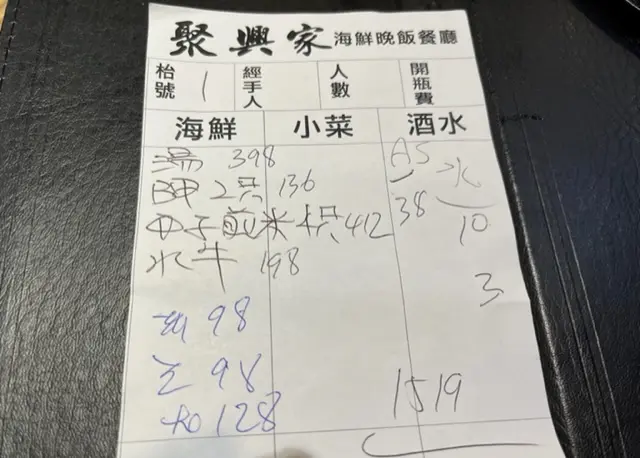 聚興家 海鮮晚飯餐廳
枱號 1 經手人 人數 開瓶費
海鮮 小菜 酒水
湯 398
2只 136
煎米 412
水牛 198
98
98
128
38
水
10
3
1519